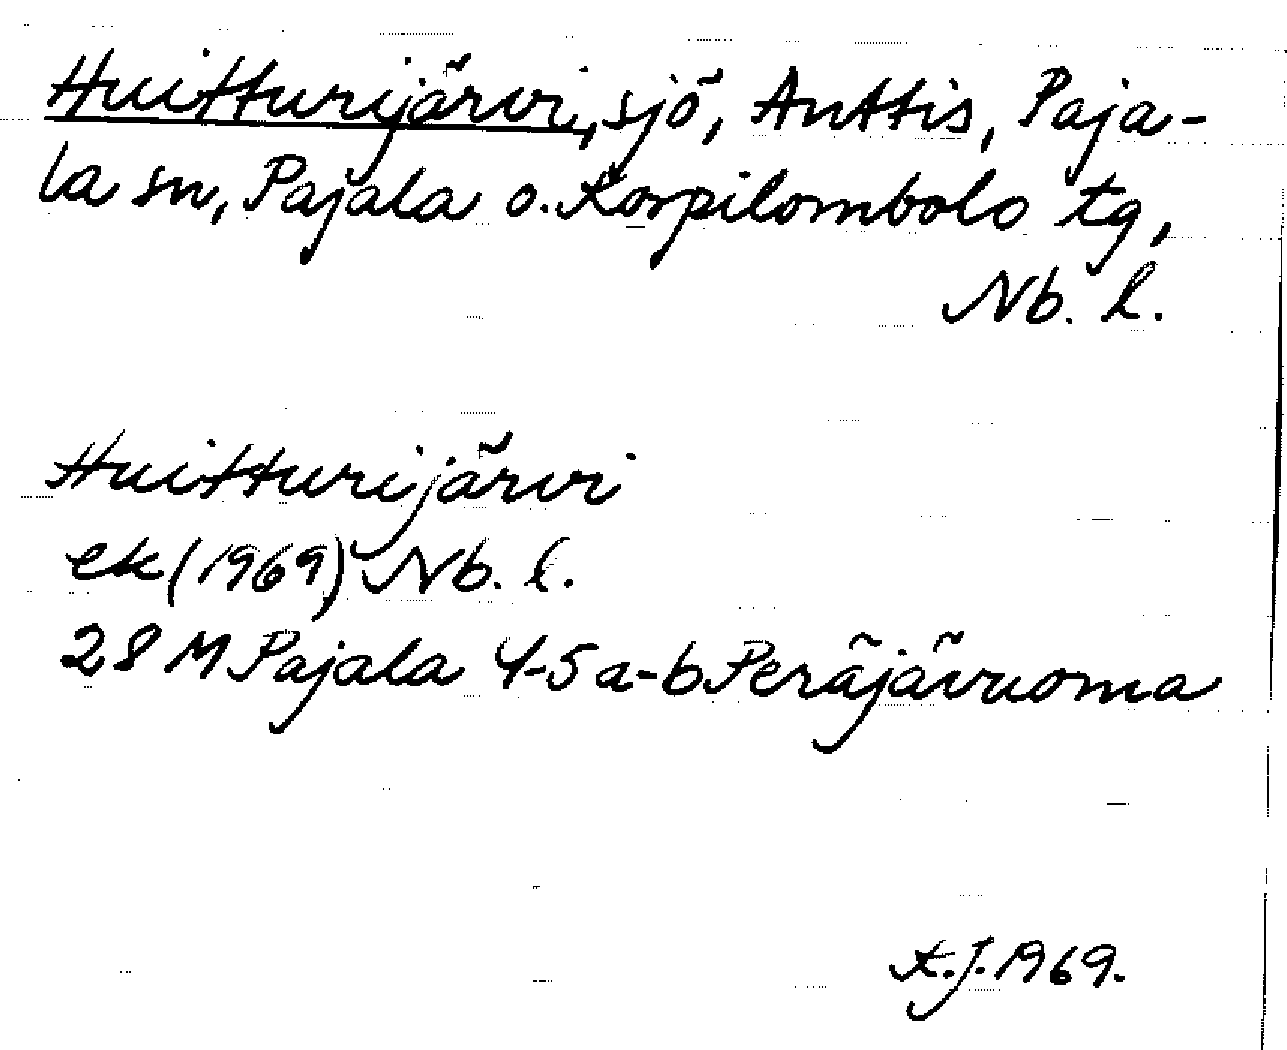 Huitturijärvi, sjö, Anttis, Paja-
la sn, Pajala o. Korpilombolo tg,
Nb. l.
Huitturijärvi
ek (1969) Nb. l.
28 M Pajala 4-5 a-b Peräjävuoma
A.J. 1969.